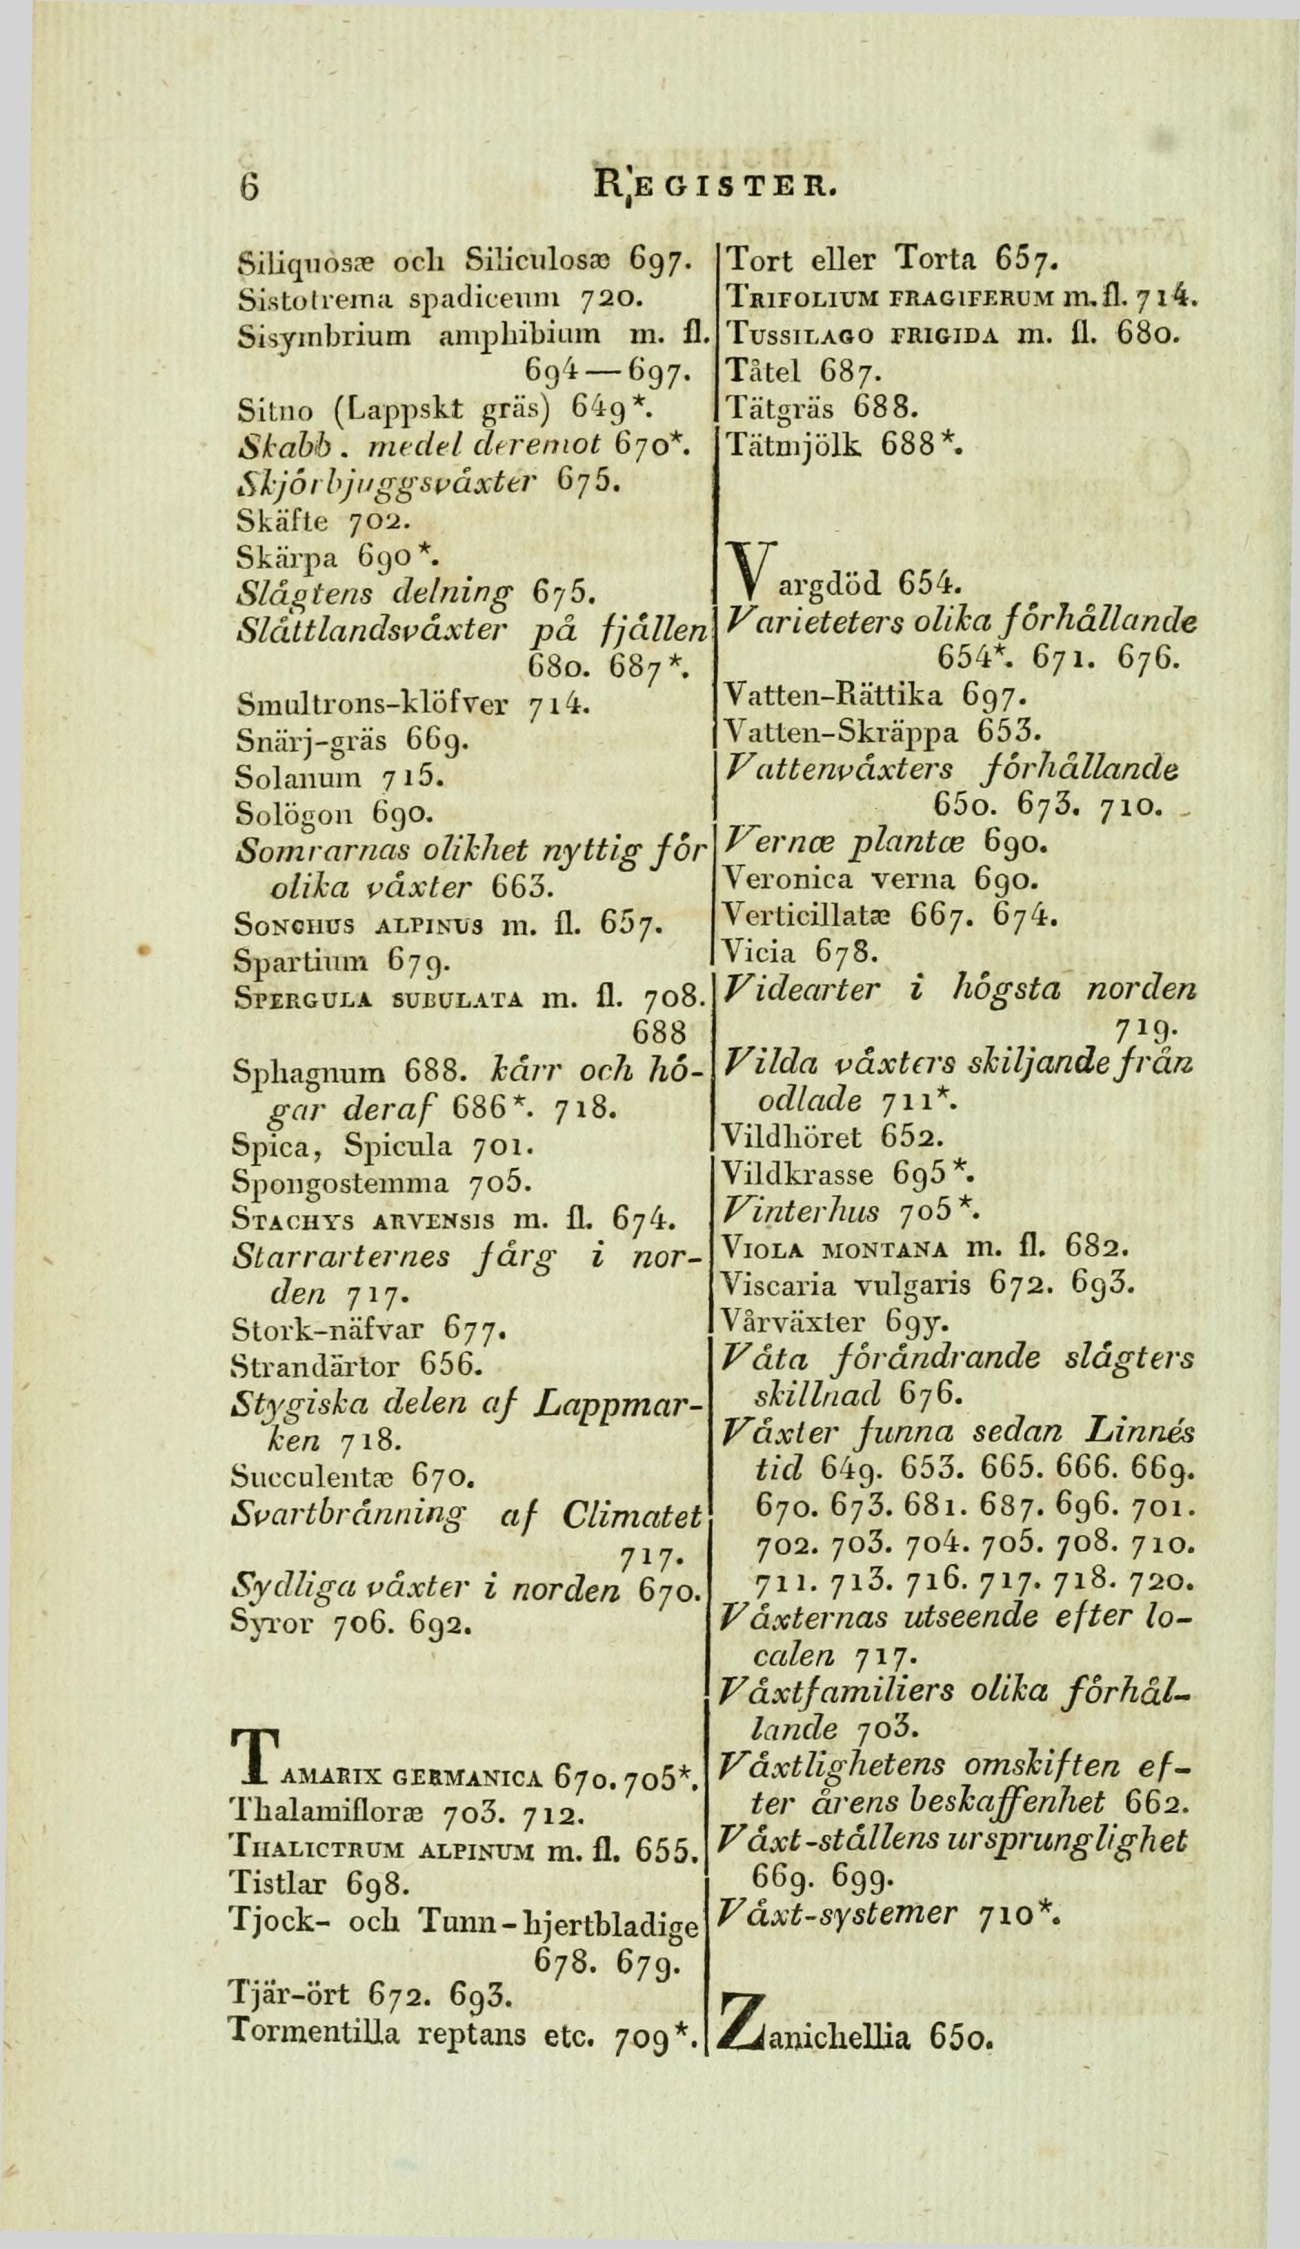 6
REGISTER.
Siliquosæ och Siliculosæ 697.
Sistotrema spadiceum 720.
Sisymbrium amphibium m. fl.
694—697.
Sitno (Lappskt gräs) 649*.
Skabb. medel deremot 670*.
Skjörbjuggsväxter 675.
Skäfte 702.
Skärpa 690*.
Slägtens delning 675.
Slättlandsväxter på fjällen
680. 687*.
Smultrons-klöfver 714.
Snärj-gräs 669.
Solanum 715.
Solögon 690.
Somrarnas olikhet nyttig för
olika växter 663.
SONCHUS ALPINUS m. fl. 657.
Spartium 679.
SPERGULA SUBULATA m. fl. 708.
688
Sphagnum 688. kärr och hö-
gar deraf 686*. 718.
Spica, Spicula 701.
Spongostemma 705.
STACHYS ARVENSIS m. fl. 674.
Starrarternes färg i nor-
den 717.
Stork-näfvar 677.
Strandärtor 656.
Stygiska delen af Lappmar-
ken 718.
Succulentæ 670.
Svartbränning af Climatet
717.
Sydliga växter i norden 670.
Syror 706. 692.
TAMARIX GERMANICA 670. 705*.
Thalamifloræ 703. 712.
THALICTRUM ALPINUM m. fl. 655.
Tistlar 698.
Tjock- och Tunn-hjertbladige
678. 679.
Tjär-ört 672. 693.
Tormentilla reptans etc. 709*.
Tort eller Torta 657.
TRIFOLIUM FRAGIFERUM m. fl. 714.
TUSSILAGO FRIGIDA m. fl. 680.
Tåtel 687.
Tätgräs 688.
Tätmjölk 688*.
Vargdöd 654.
Varieteters olika förhållande
654*. 671. 676.
Vatten-Rättika 697.
Vatten-Skräppa 653.
Vattenväxters förhållande
650. 673. 710.
Vernæ plantæ 690.
Veronica verna 690.
Verticillatæ 667. 674.
Vicia 678.
Videarter i högsta norden
719.
Vilda växters skiljande från
odlade 711*.
Vildhöret 652.
Vildkrasse 695*.
Vinterhus 705*.
VIOLA MONTANA m. fl. 682.
Viscaria vulgaris 672. 693.
Vårväxter 69y.
Våta förändrande slägters
skillnad 676.
Växter funna sedan Linnés
tid 649. 653. 665. 666. 669.
670. 673. 681. 687. 696. 701.
702. 703. 704. 705. 708. 710.
711. 713. 716. 717. 718. 720.
Växternas utseende efter lo-
calen 717.
Växtfamiliers olika förhål-
lande 703.
Växtlighetens omskiften ef-
ter årens beskaffenhet 662.
Växt-ställens ursprunglighet
669. 699.
Växt-systemer 710*.
Zanichellia 650.